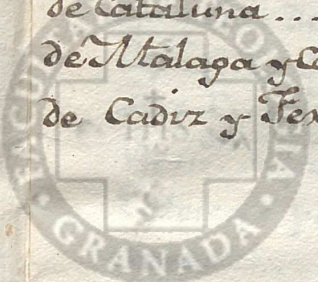 de Cataluna...
de Malaga y
de Cadiz y
GRANADA